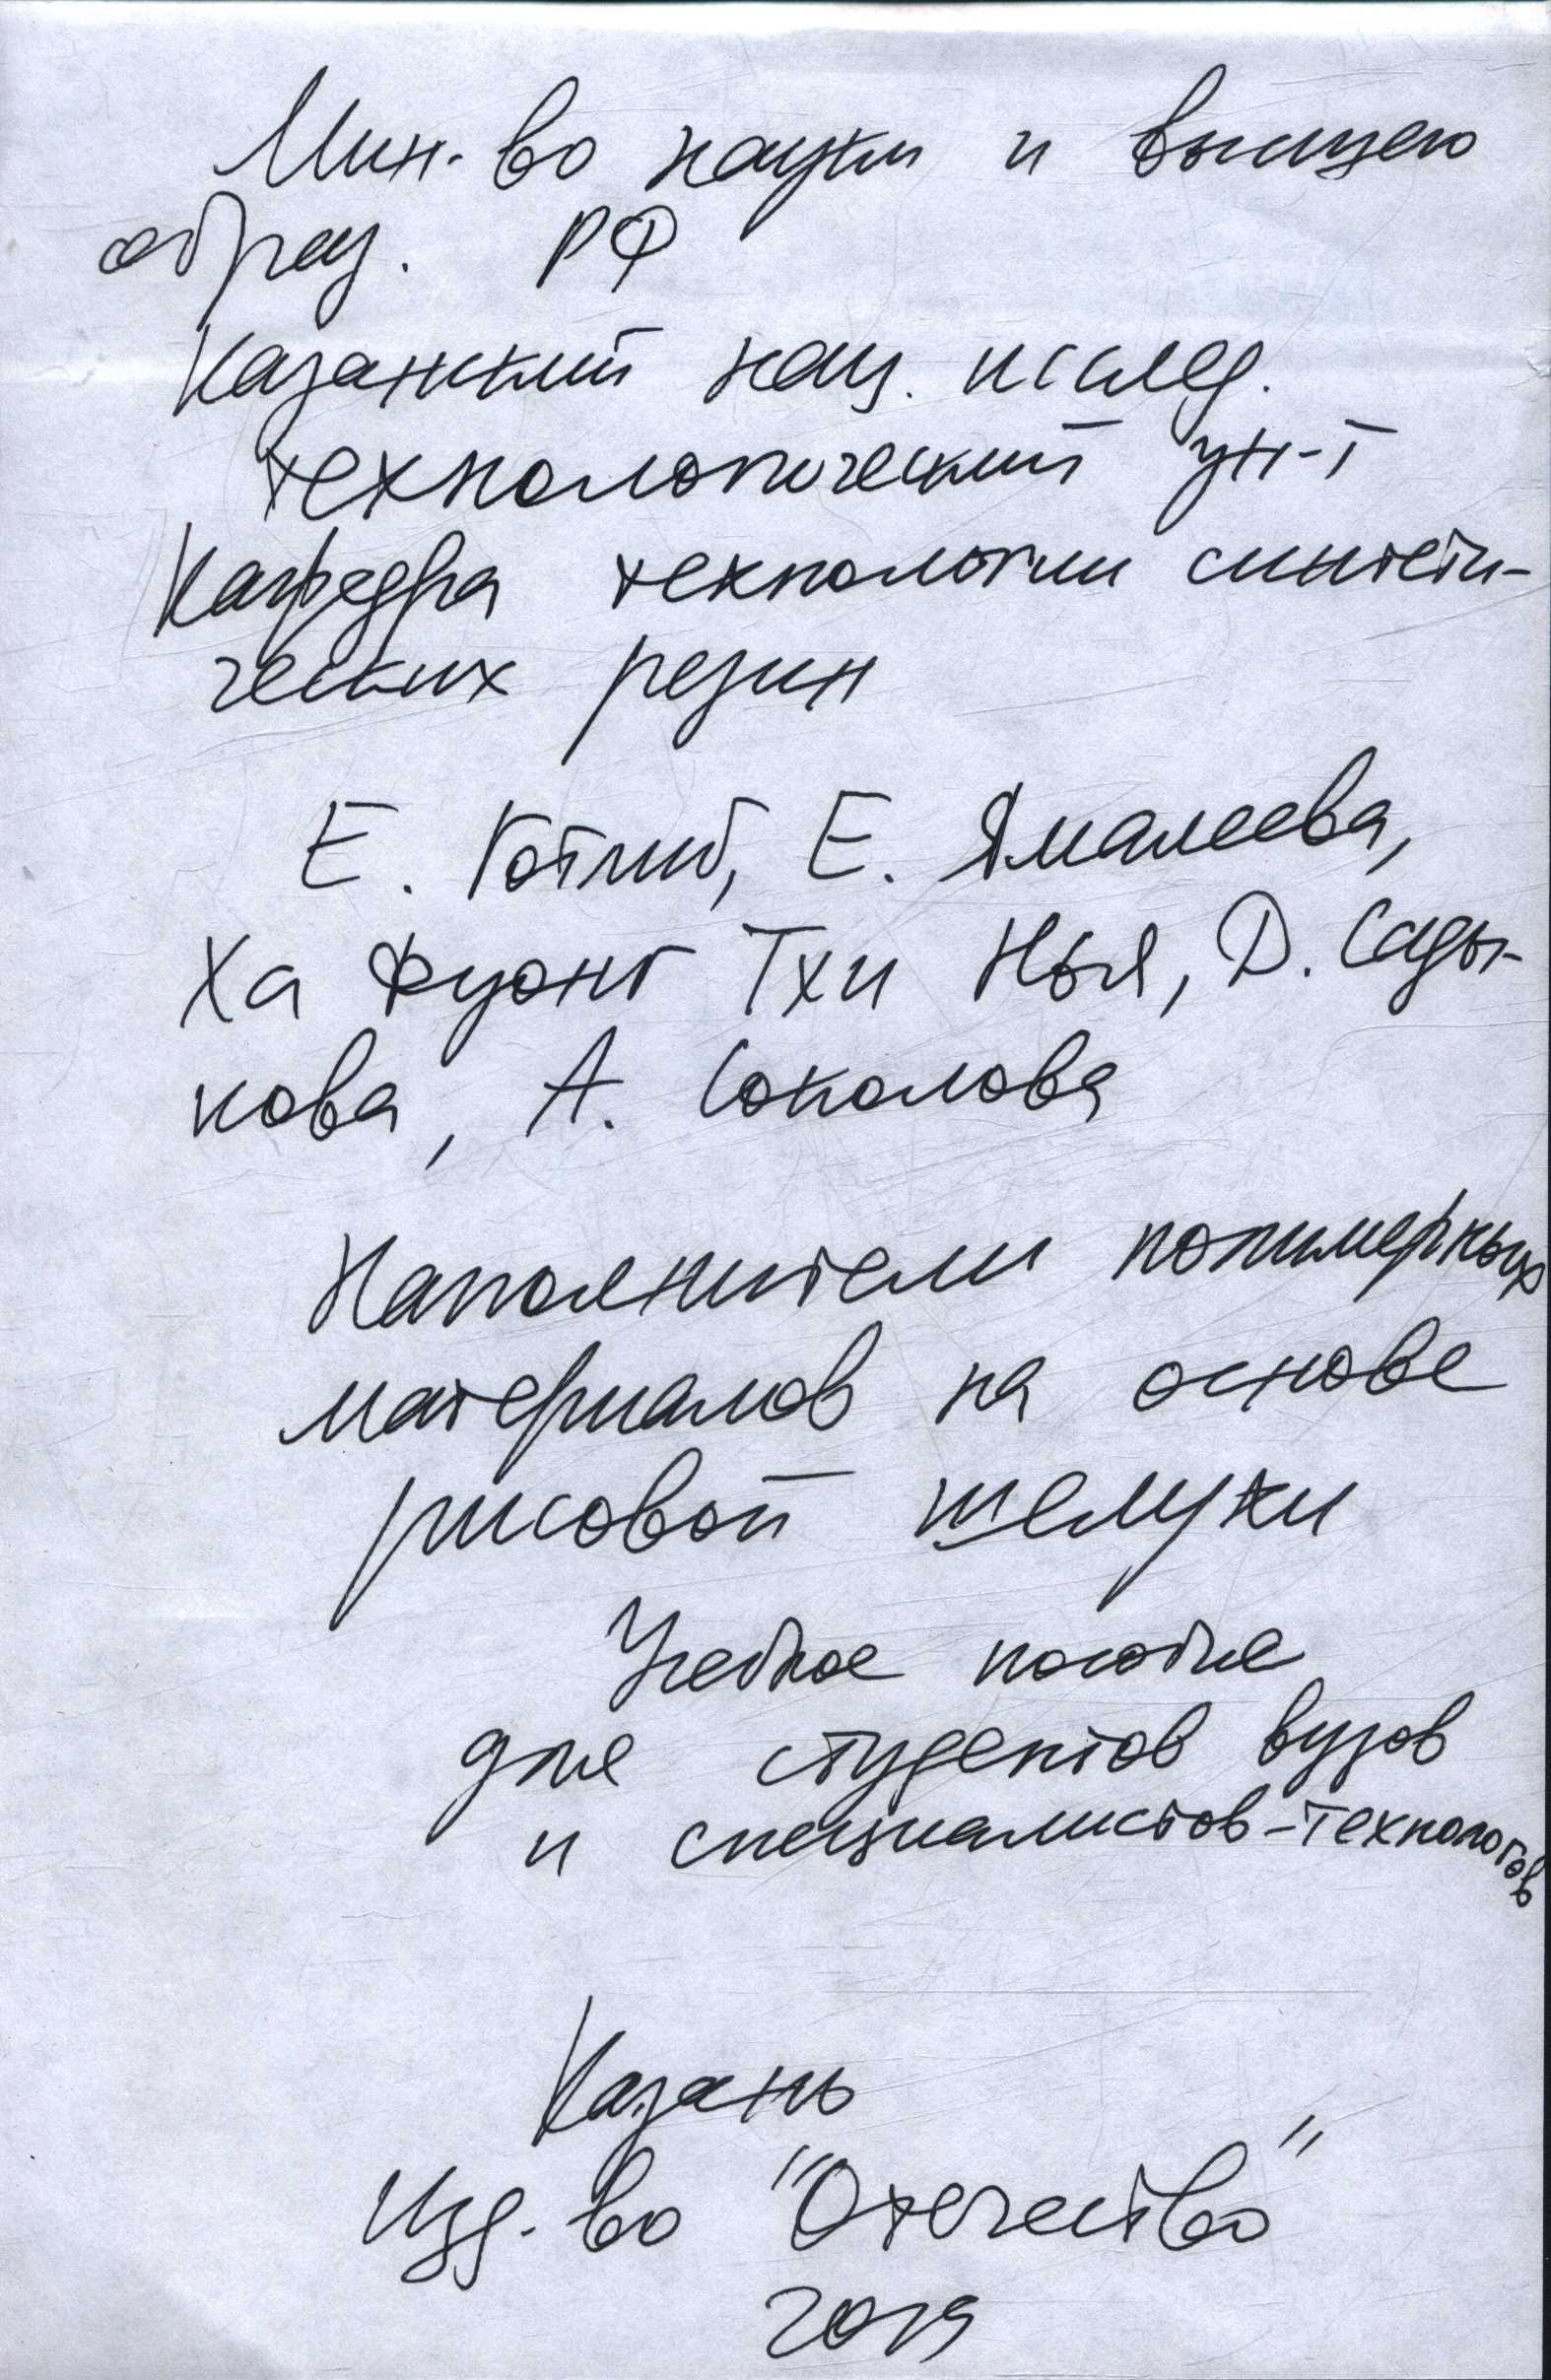 Мин-во науки и высшего
образ. РФ
Казанский нац. исслед.
технологический ун-т
Кафедра технологии синтети-
ческих резин
Е. Готлиб, Е. Ямалеева,
Ха Фуонг Тхи Нья, Д. Сады-
кова, А. Соколова
Наполнители полимерных
материалов на основе
рисовой шелухи
Учебное пособие
для студентов вузов
и специалистов-технологов
Казань
Изд-во "Отечество"
2019